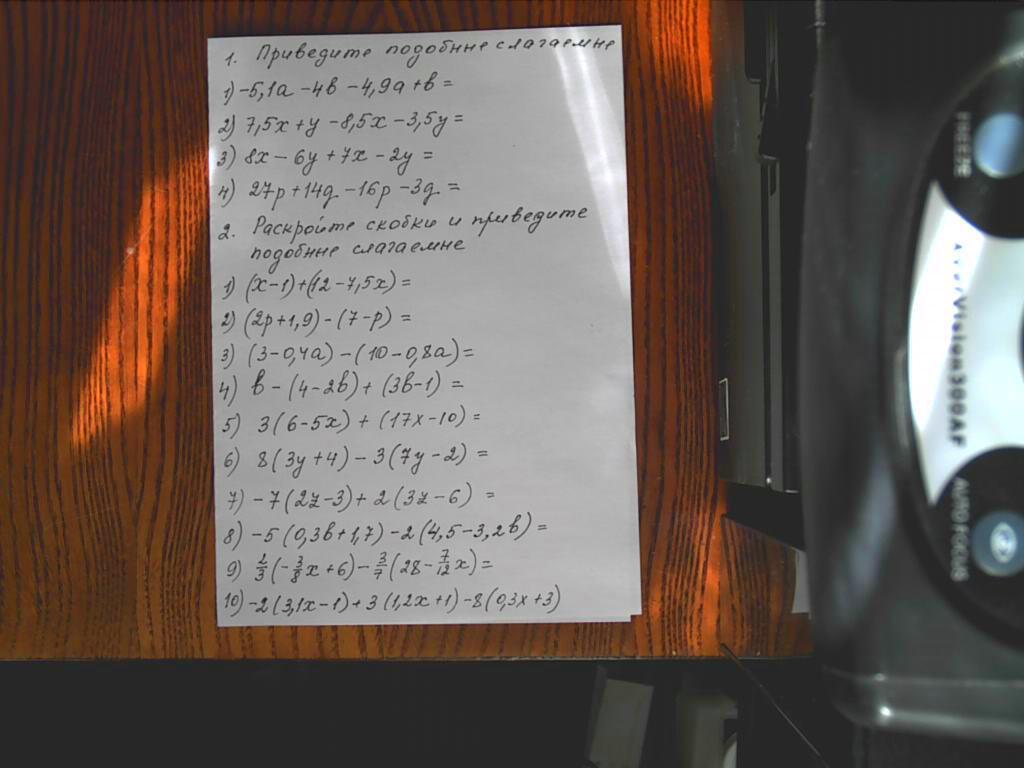 1. Приведите подобные слагаемые
1) -5,1a - 4b - 4,9a + b =
2) 7,5x + y - 8,5x - 3,5y =
3) 8x - 6y + 7x - 2y =
4) 27p + 14q - 16p - 3q =
2. Раскройте скобки и приведите
подобные слагаемые
1) (x-1)+(12-7,5x) =
2) (2p+1,9) - (7-p) =
3) (3-0,4a) - (10-0,8a) =
4) b - (4-2b) + (3b-1) =
5) 3(6-5x) + (17x-10) =
6) 8(3y+4) - 3(7y-2) =
7) -7(2z-3) + 2(3z-6) =
8) -5(0,3b+1,7) - 2(4,5-3,2b) =
9) 2/3(-3/8x+6) - 3/7(28-7/12x) =
10) -2(3,1x-1)+3(1,2x+1)-8(0,3x+3)
FREEZE
AVerVision300AF
AUTO FOCUS